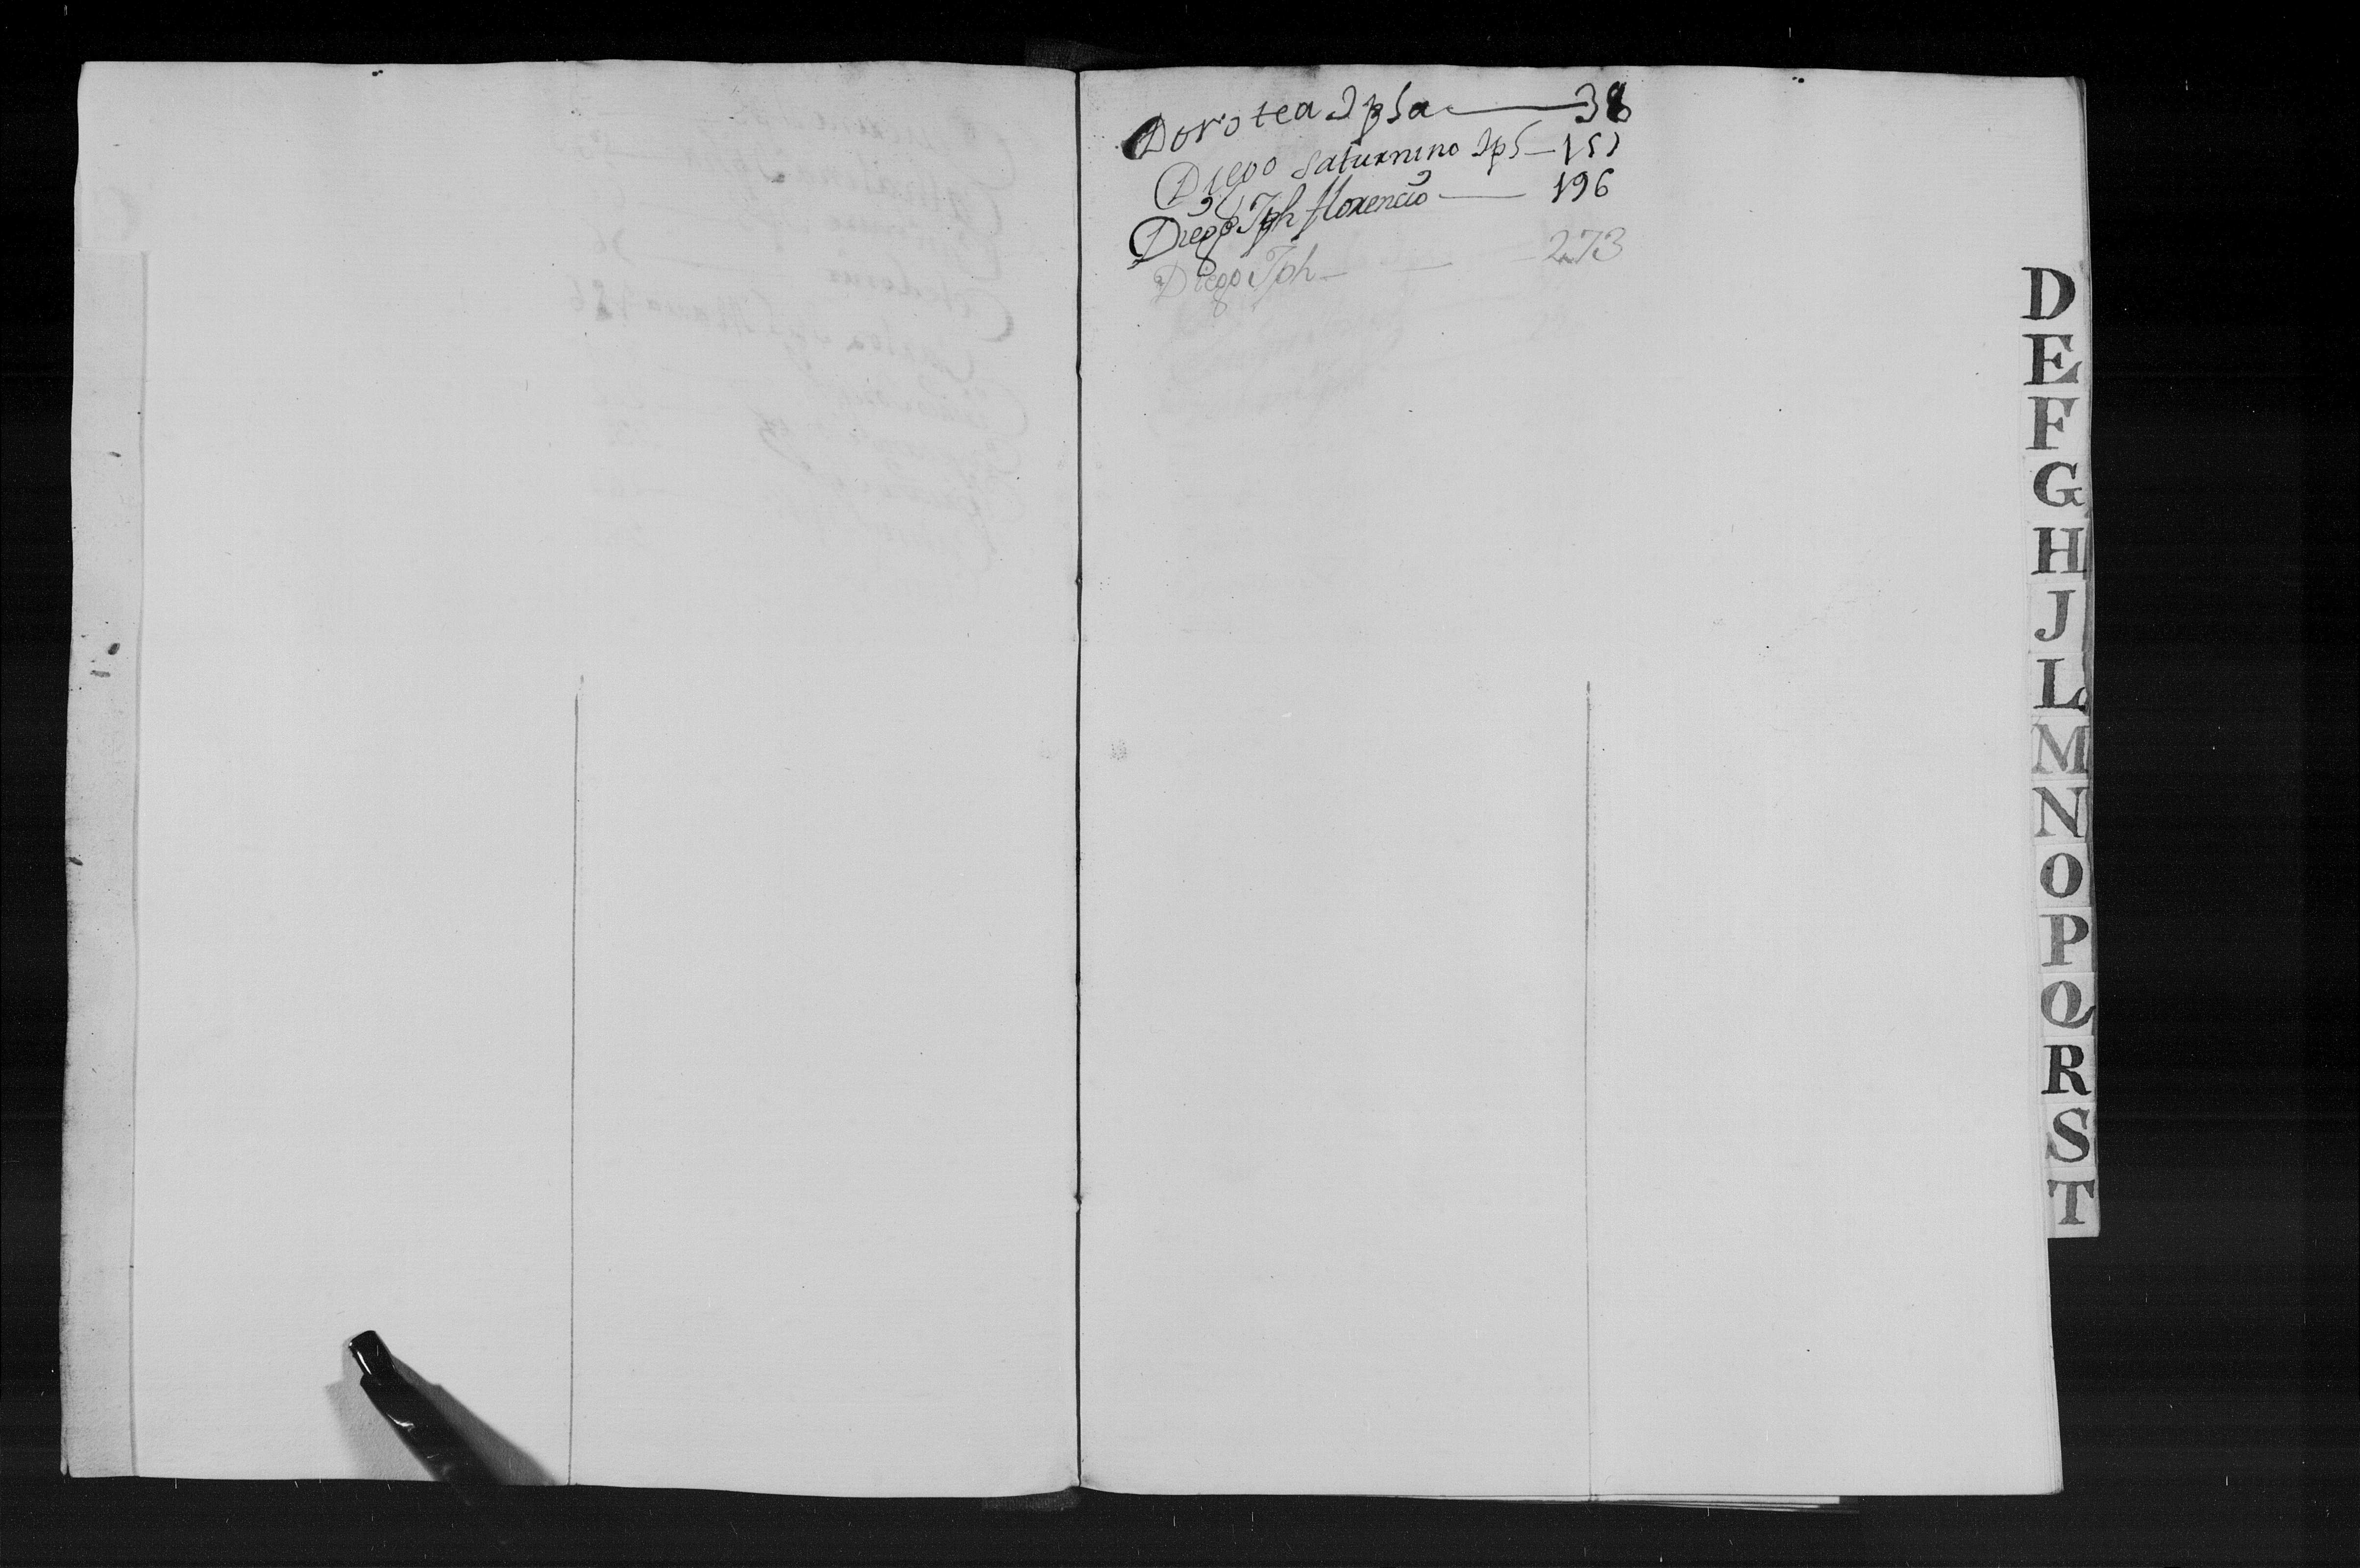 Dorotea Ipsa — 38
Diego Saturnino Ips — 151
Diego Jph florencio — 196
Diego Jph — 273
D
E
F
G
H
J
L
M
N
O
P
Q
R
S
T